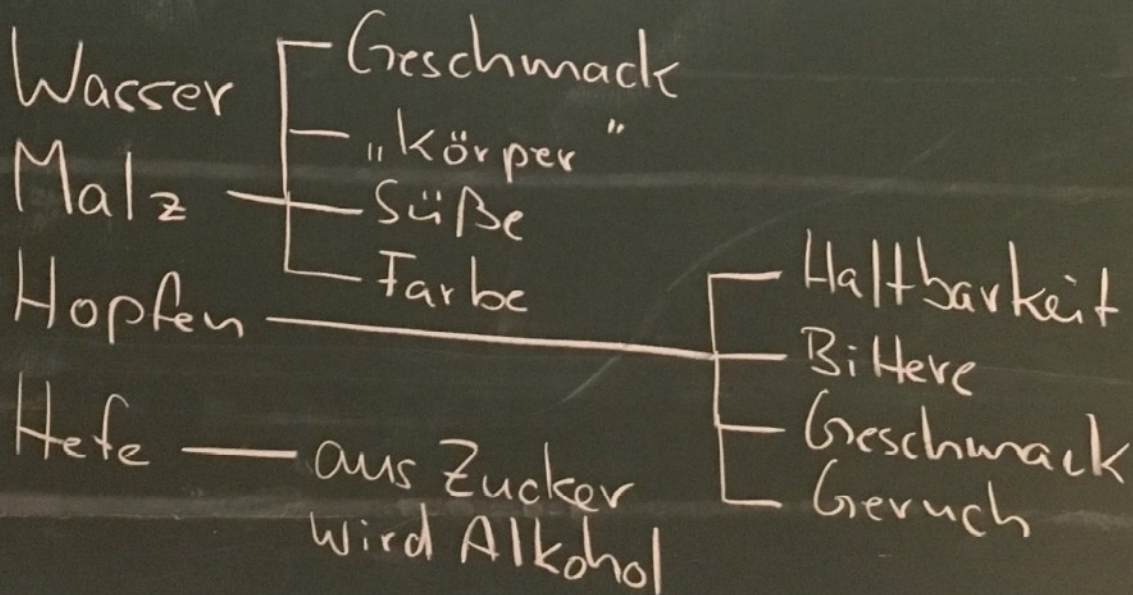 Wasser
Malz
Geschmack
„Körper"
Süße
Farbe
Hopfen
Haltbarkeit
Bittere
Geschmack
Geruch
Hefe
aus Zucker
wird Alkohol